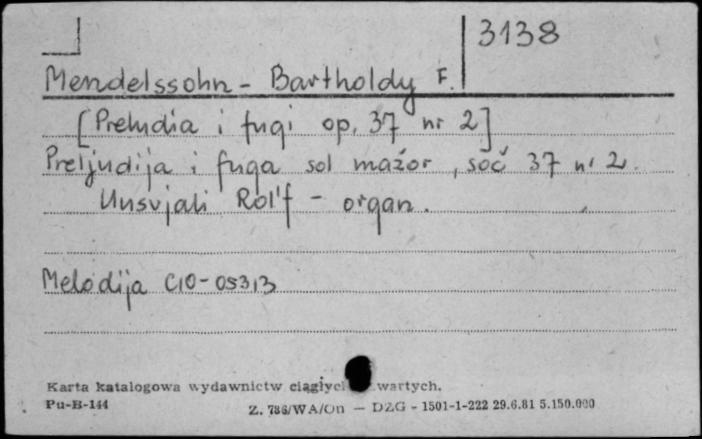 3138
Mendelssohn - Bartholdy F.
[Preludia i fugi op. 37 nr 2]
Preljudija i fuga sol mažor, soč 37 nr 2.
Uusvjali Rol'f - organ.
Melodija C10-05313
Karta katalogowa wydawnictw ciągłyc wartych.
Pu-B-144
Z. 786/WA/On — DZG - 1501-1-222 29.6.81 5.150.000